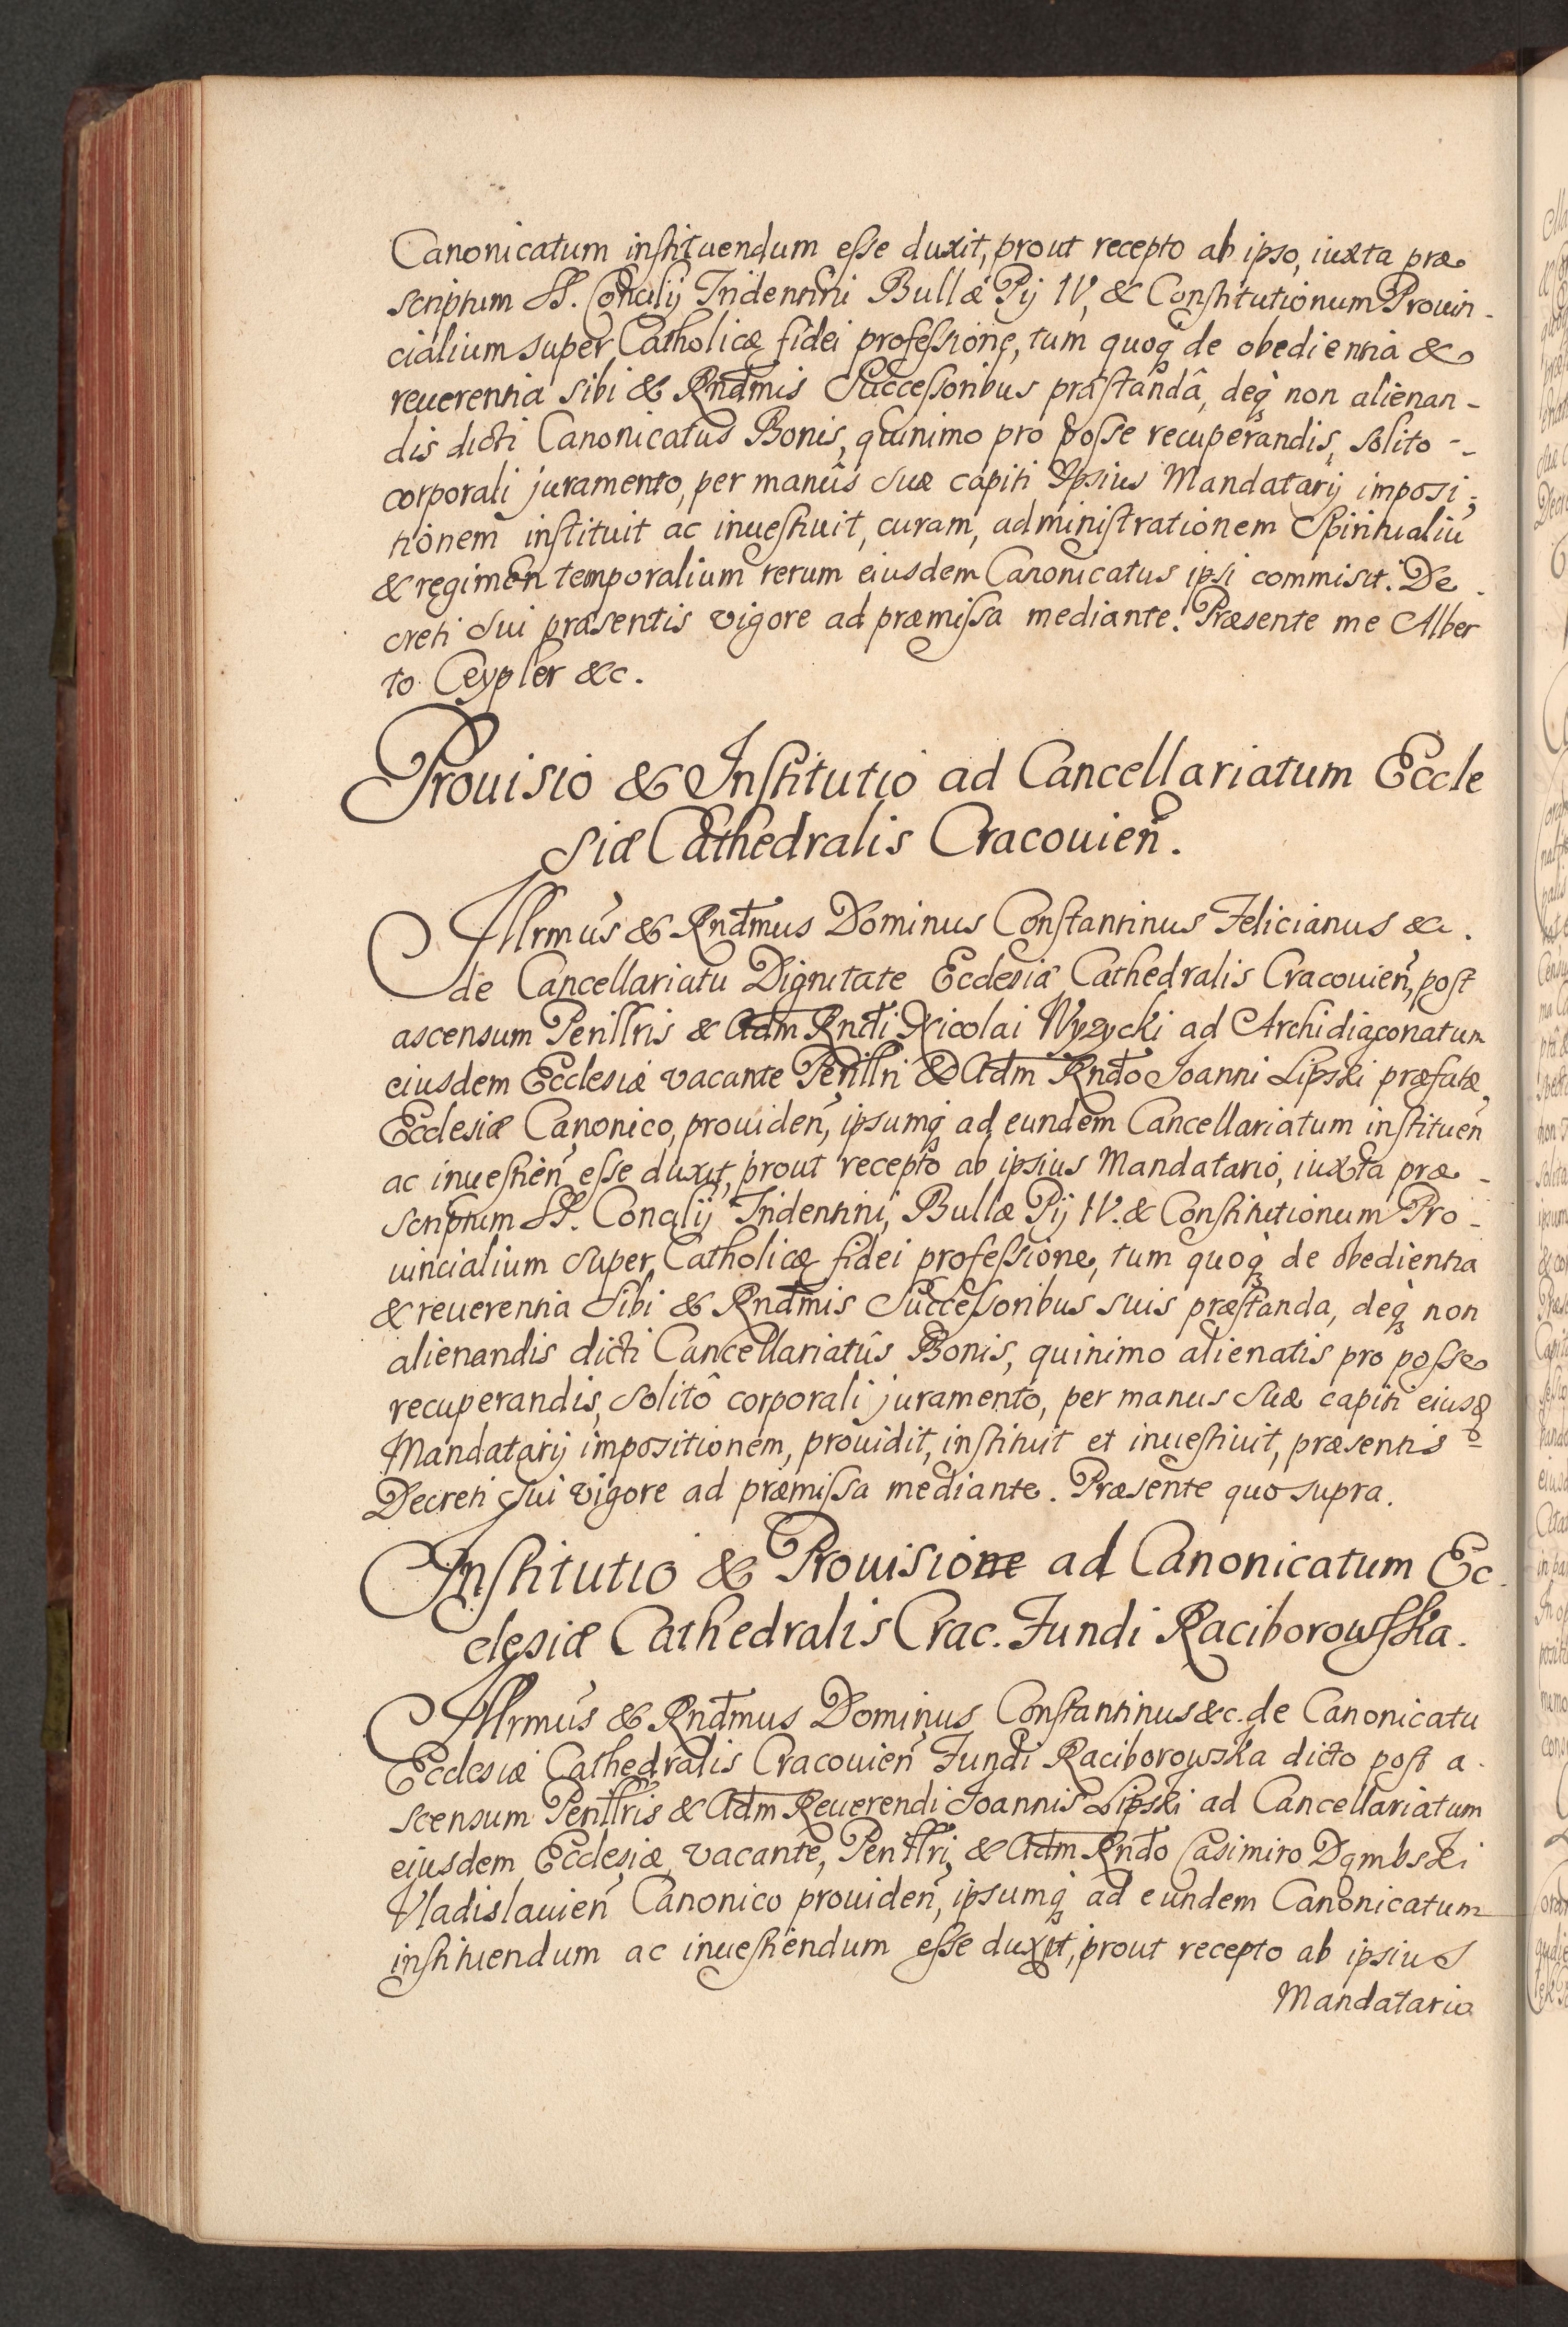 Canonicatum instituendum esse duxit, prout recepto ab ipso, iuxta præ
scriptum SS. Concilij Tridentini Bullæ Pij IV, & Constitutionum Prouin-
cialium super Catholicæ fidei professione, tum quoq; de obedientia &
reuerentia sibi & Rndmis Successoribus præstandâ, deq; non alienan-
dis dicti Canonicatus Bonis, quinimo pro posse recuperandis, solito -
corporali juramento, per manûs suæ capiti Ipsius Mandatarij imposi-
tionem instituit ac inuestiuit, curam, administrationem Spiritualiũ
& regimen temporalium rerum eiusdem Canonicatus ipsi commisit. De-
creti sui præsentis vigore ad præmissa mediante. Præsente me Alber
to Ceypler &c.
Prouisio & Institutio ad Cancellariatum Eccle
siæ Cathedralis Cracouień.
Illrmus & Rndmus Dominus Constantinus Felicianus &c.
de Cancellariatu Dignitate Ecclesiæ Cathedralis Cracouień, post
ascensum Perillris & Adm Rndi Nicolai Wyzycki ad Archidiaconatum
eiusdem Ecclesiæ vacante Perillri & Adm Rndo Joanni Lipski præfatæ
Ecclesiæ Canonico, prouideń, ipsumq; ad eundem Cancellariatum instituen
ac inuestień esse duxit, prout recepto ab ipsius Mandatario, iuxta præ-
scriptum SS. Concilij Tridentini, Bullæ Pij IV. & Constitutionum Pro-
uincialium super Catholicæ fidei professione, tum quoq; de obedientia
& reuerentia sibi & Rndmis Successoribus suis præstanda, deq; non
alienandis dicti Cancellariatûs Bonis, quinimo alienatis pro posse
recuperandis, solitô corporali juramento, per manus suæ capiti eiusd
Mandatarij impositionem, prouidit, instituit et inuestiuit, præsentis
Decreti sui vigore ad præmissa mediante. Præsente quo supra.
Institutio & Prouisione ad Canonicatum Ec-
clesiæ Cathedralis Crac. Fundi Raciborowsska.
Illrmus & Rndmus Dominus Constantinus &c. de Canonicatu
Ecclesiæ Cathedralis Cracouień Fundi Raciborowska dicto post a-
scensum Perillris & Adm Reuerendi Joannis Lipski ad Cancellariatum
eiusdem Ecclesiæ, vacante, Perillri, & Adm Rndo Casimiro Dąmbski
Vladislauień Canonico prouideń, ipsumq; ad eundem Canonicatum
instituendum ac inuestiendum esse duxit, prout recepto ab ipsius
Mandatario